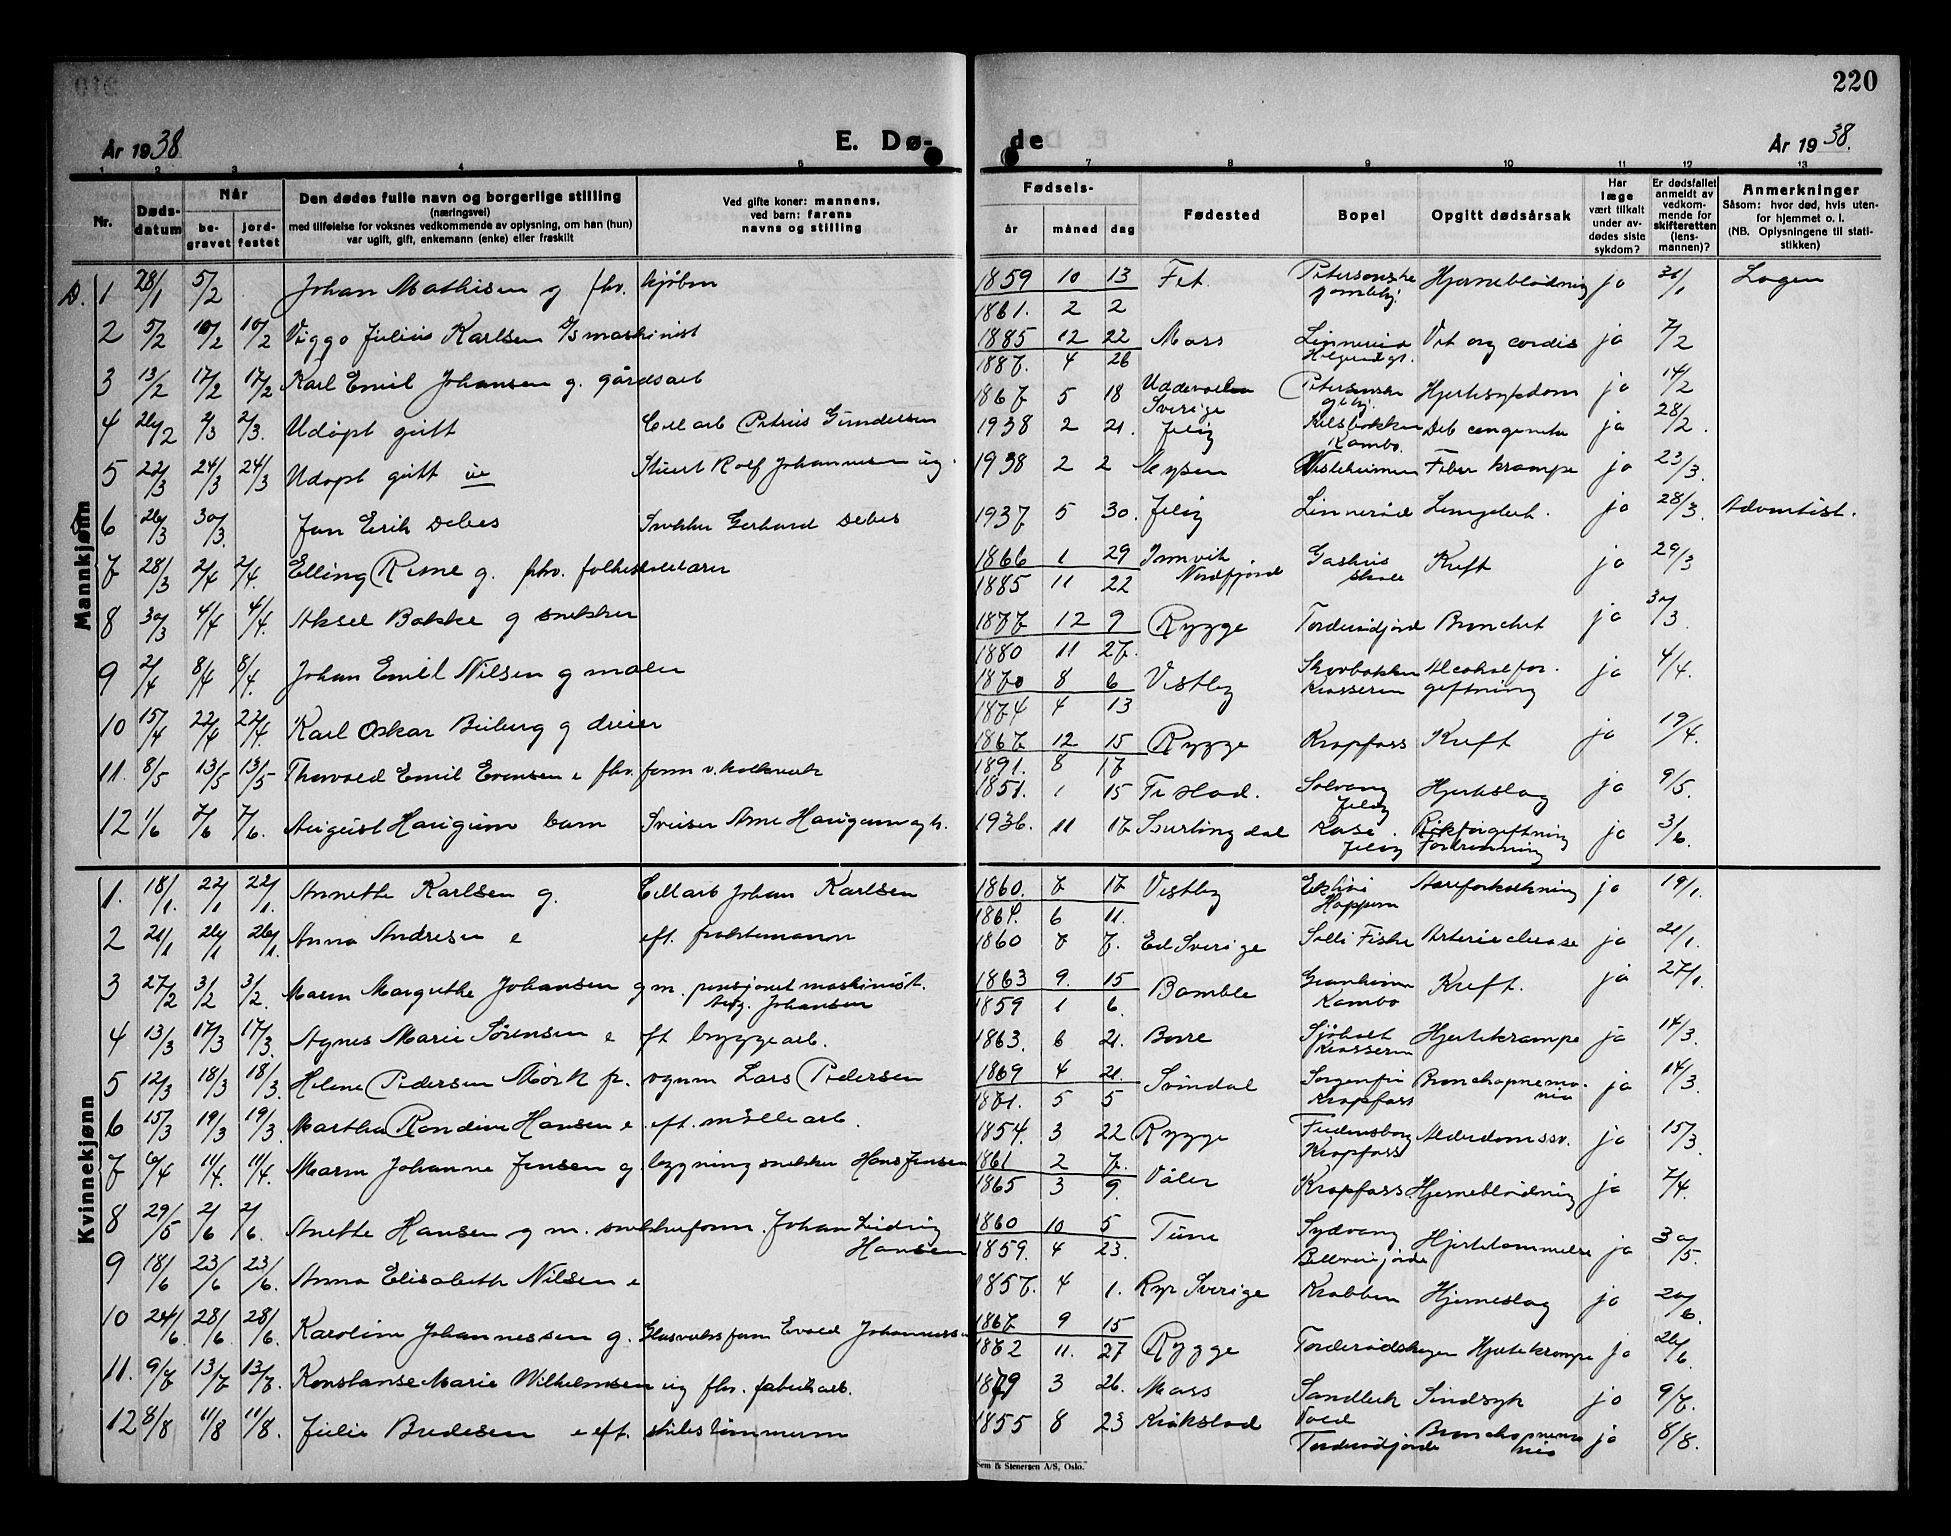 220
År 1938
E. Dø-
de
År 1938.
1 2 3 4 5 7 8 9 10 11 12 13
Nr.
Døds-
datum
Når
be-
gravet
jord-
festet
Den dødes fulle navn og borgerlige stilling
(næringsvei)
med tilføielse for voksnes vedkommende av oplysning, om han (hun)
var ugift, gift, enkemann (enke) eller fraskilt
Ved gifte koner: mannens,
ved barn: farens
navns og stilling
Fødsels-
år måned dag
Fødested
Bopel
Opgitt dødsårsak
Har
læge
vært tilkalt
under av-
dødes siste
sykdom?
Er dødsfallet
anmeldt av
vedkom-
mende for
skifteretten
(lens-
mannen)?
Anmerkninger
Såsom: hvor død, hvis uten-
for hjemmet o. l.
(NB. Oplysningene til stati-
stikken)
Mannkjønn
D. 1 28/1 5/2 Johan Mathisen g fhv. kjøbm 1859 10 13 Fet. Hjerneblødning ja 31/1
1861. 2 2
2 5/2 10/2 10/2 Viggo Julius Karlsen g/s maskinist 1885 12 22 Moss Vit org cordis ja 7/2
1887. 4 26
3 13/2 17/2 17/2 Karl Emil Johansen g. gårdsarb 1867 5 18 Uddevalla Sverige Hjertesykdom ja 14/2
4 26/2 2/3 2/3. Udøpt gutt Cell arb Petrus Gundersen 1938 2 21. Jeløy Kambo. Deb congenita ja 28/2.
5 22/3 24/3 24/3 Udøpt gutt ue Stuert Rolf Johannesen ug. 1938 2 2 Mysen Feber krampe ja 23/3.
6 26/3 30/3. Jan Erik Debes Snekker Gerhard Debes 1937 5 30. Jeløy Linnerød Lungebet. ja 28/3. Adventist.
7 28/3 2/4 2/4. Elling Risne g. fhv. folkeskolelærer 1866 1 29 Innvik Nordfjord Kreft ja 29/3
1885 11 22
8 30/3 4/4 4/4. Aksel Bakke g snekker 1877 12 9 Rygge Bronchit ja 30/3.
1880 11 27.
9 2/4 8/4 8/4. Johan Emil Nilsen g maler 1870 8 6 Vestby Krosseren Alcoholfor-
giftning ja 4/4.
1874 4 13
10 15/4 22/4 22/4. Karl Oskar Biberg g dreier 1867 12 15 Rygge Krapfoss Kreft ja 19/4.
1891. 8 17
11. 8/5 13/5 13/5 Thorvald Emil Evensen e fhv. form v. kalkverk 1851. 1 15 Solvang Jeløy Hjerteslag ja 9/5.
12 1/6 7/6 7/6. August Haugum barn Sveiser Arne Haugum og h. 1936. 11 17 Surlingdal Kase. Jeløy ja 3/6.
Kvinnekjønn
1. 18/1. 22/1 22/1. Annette Karlsen g. Cellarb Johan Karlsen 1860. 7 17 Vestby Aareforkalkning ja 19/1.
1864. 6 11.
2 21/1 26/1 26/1. Anna Andresen e eft. fraktemann 1860 7 7. Ed Sverige ja 21/1.
3 27/2 3/2 3/2. Maren Margrethe Johansen g m. pensjonert maskinist.
Aug. Johansen 1863 9. 15 Bamble Granheim Kambo Kreft. ja 27/1.
1859 1 6.
4 13/3 17/3 17/3. Agnes Marie Sørensen e eft bryggearb. 1863. 6 21. Borre Sjøholt Krosseren Hjertekrampe ja 14/3.
5 12/3 18/3 18/3. Helene Pedersen Mørk fr. vognm Lars Pedersen 1869 4 21. Svindal Sorgenfri Krapfoss Bronchopnemo-
nia ja 14/3.
1871. 5 5
6 15/3 19/3 19/3. Martha Randine Hansen e eft. møllearb. 1854. 3 22 Rygge Fredensborg Krapfoss Alderdomssv. ja 15/3.
7 6/4 11/4. 11/4. Maren Johanne Jensen g bygningsnekker Hans Jensen 1861 2 7. Våler Krapfoss Hjerneblødning ja 7/4.
1865 3 9.
8 29/5 2/6 2/6. Anette Hansen g m. snekkerform. Johan Ludvig
Hansen 1860 10 5 Tune Sydvang Hjertelammelse ja 30/5.
1859. 4 23.
9 18/6 23/6 23/6. Anna Elisabeth Nilsen e 1857. 4 1. Ryr Sverige Krabben Hjerneslag ja 20/6.
10 24/6. 28/6. 28/6. Karoline Johannessen g. Glassverksform Evald Johannessen 1867 9 15 Rygge Hjertekrampe ja 26/6.
1862 11. 27
11. 9/7 13/7 13/7. Konstanse Marie Wilhelmsen ug fhv. fabrikarb. 1879 3 26. Moss Sandbæk Sindsyk ja 9/7.
12 8/8 11/8 11/8. Julie Bredesen e eft. skibstømmerm 1855 8 23 Kråkstad Bronchopnemo-
nia ja 8/8.
Sem & Stenersen A/S, Oslo.